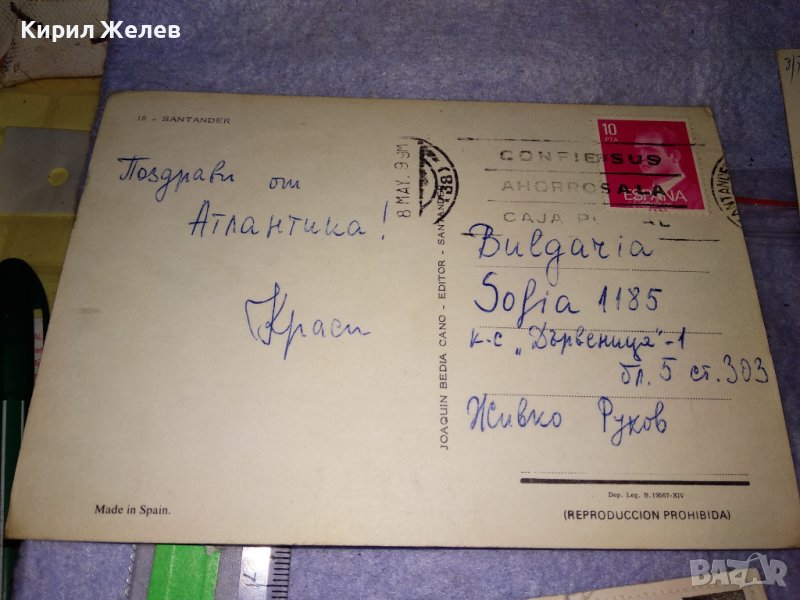 Кирил Желев
18 - SANTANDER
Поздрави от
Атлантика!
Краси
8 MAY. 99M
(38)
10
PTA
ESPAÑA
CONFIE SUS
AHORROS A LA
CAJA POSTAL
JOAQUIN BEDIA CANO - EDITOR - SANTANDER
Bulgaria
Sofia 1185
к-с „Дървеница"-1
бл. 5 ст. 303
Живко Руков
Dep. Leg. B. 19567-XIV
(REPRODUCCION PROHIBIDA)
Made in Spain.
BAZAR